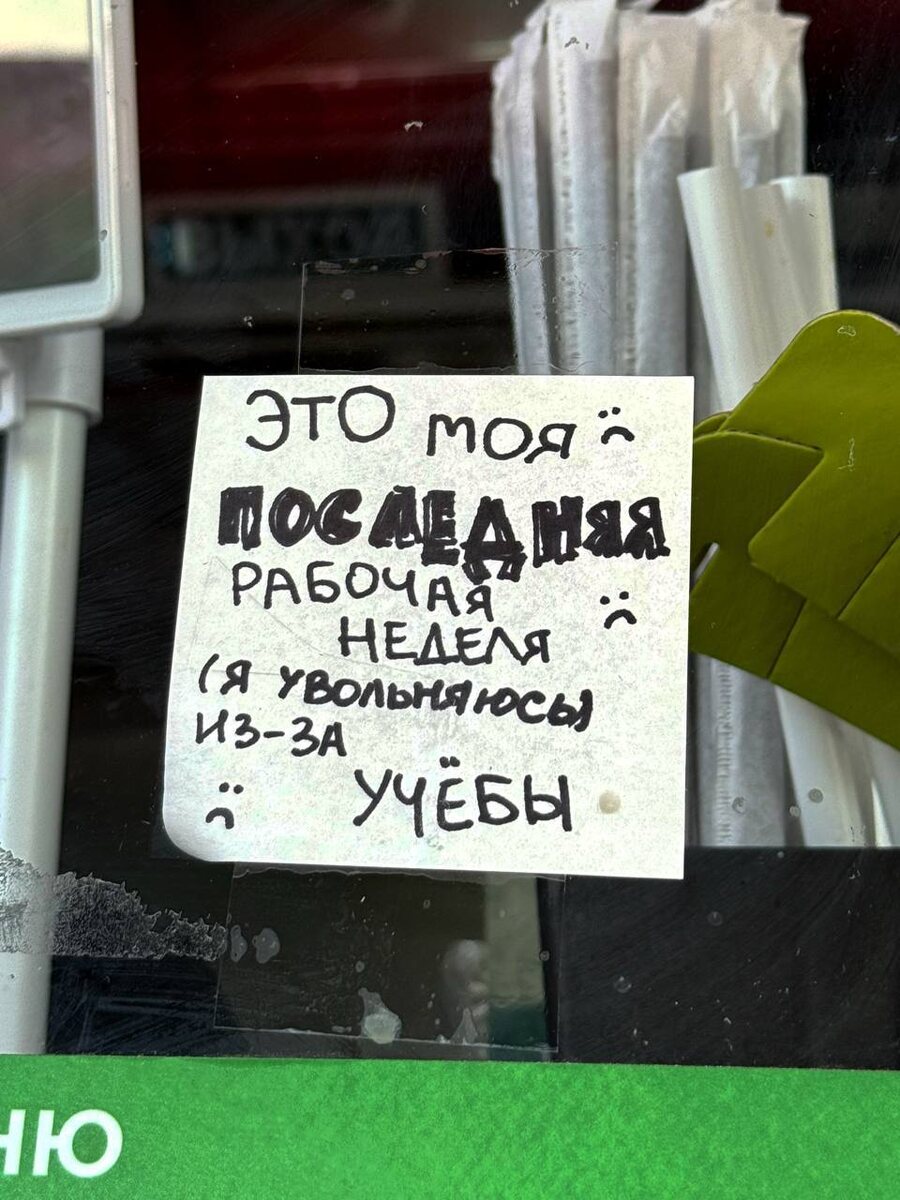 ЭТО МОЯ :(
ПОСЛЕДНЯЯ
РАБОЧАЯ
НЕДЕЛЯ :(
(Я УВОЛЬНЯЮСЬ)
ИЗ-ЗА
:( УЧЁБЫ
НЮ